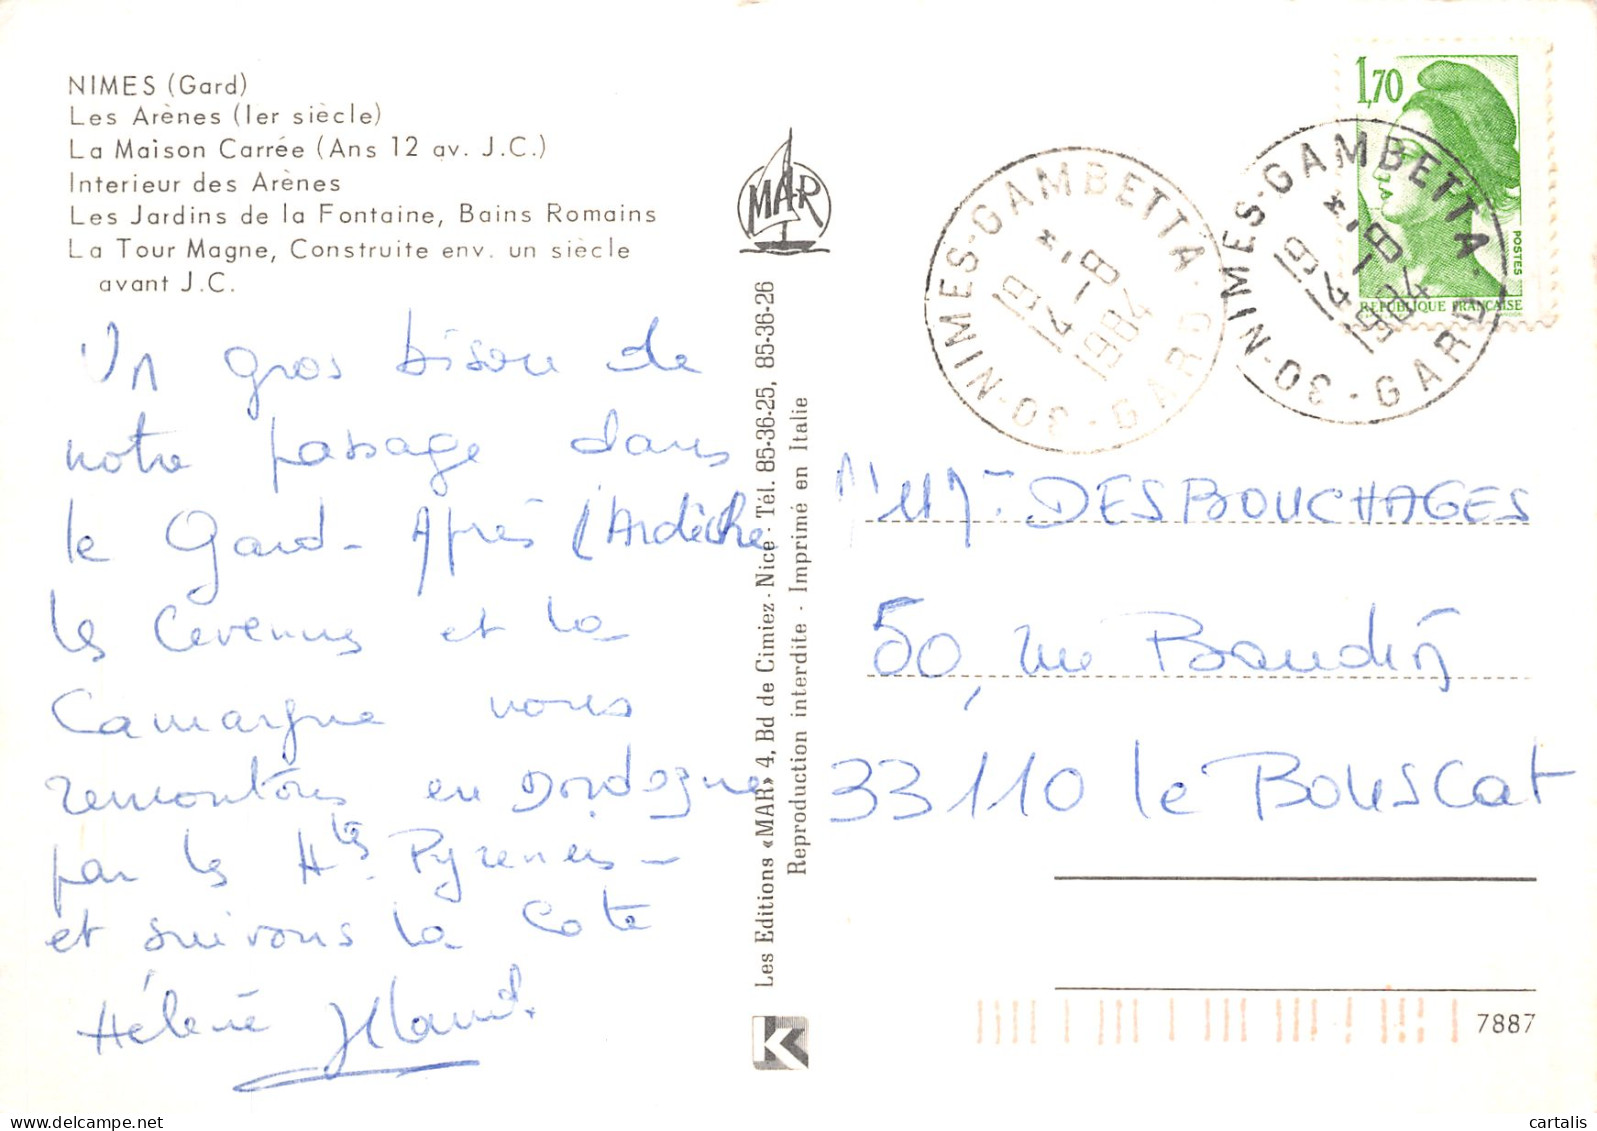 NIMES (Gard)
Les Arènes (Ier siècle)
La Maison Carrée (Ans 12 av. J.C.)
Interieur des Arènes
Les Jardins de la Fontaine, Bains Romains
La Tour Magne, Construite env. un siècle
avant J.C.
Un gros bisou de
notre passage dans
le Gard - Après l'Ardèche
les Cevennes et la
Camargue nous
remontons en Dordogne
par les Htes Pyrenees -
et suivons la Cote
Hélène
MAR
Les Editions «MAR» 4, Bd de Cimiez - Nice - Tél. 85-36-25, 85-36-26
Reproduction interdite - Imprimé en Italie
K
NIMES-GAMBETTA
30 - GARD
19 H
4-8
1984
NIMES-GAMBETTA
30 - GARD
19 H
4-8
1984
1,70
POSTES
REPUBLIQUE FRANÇAISE
DESBOUCHAGES
50, rue Baudin
33110 le Bouscat
7887
cartalis